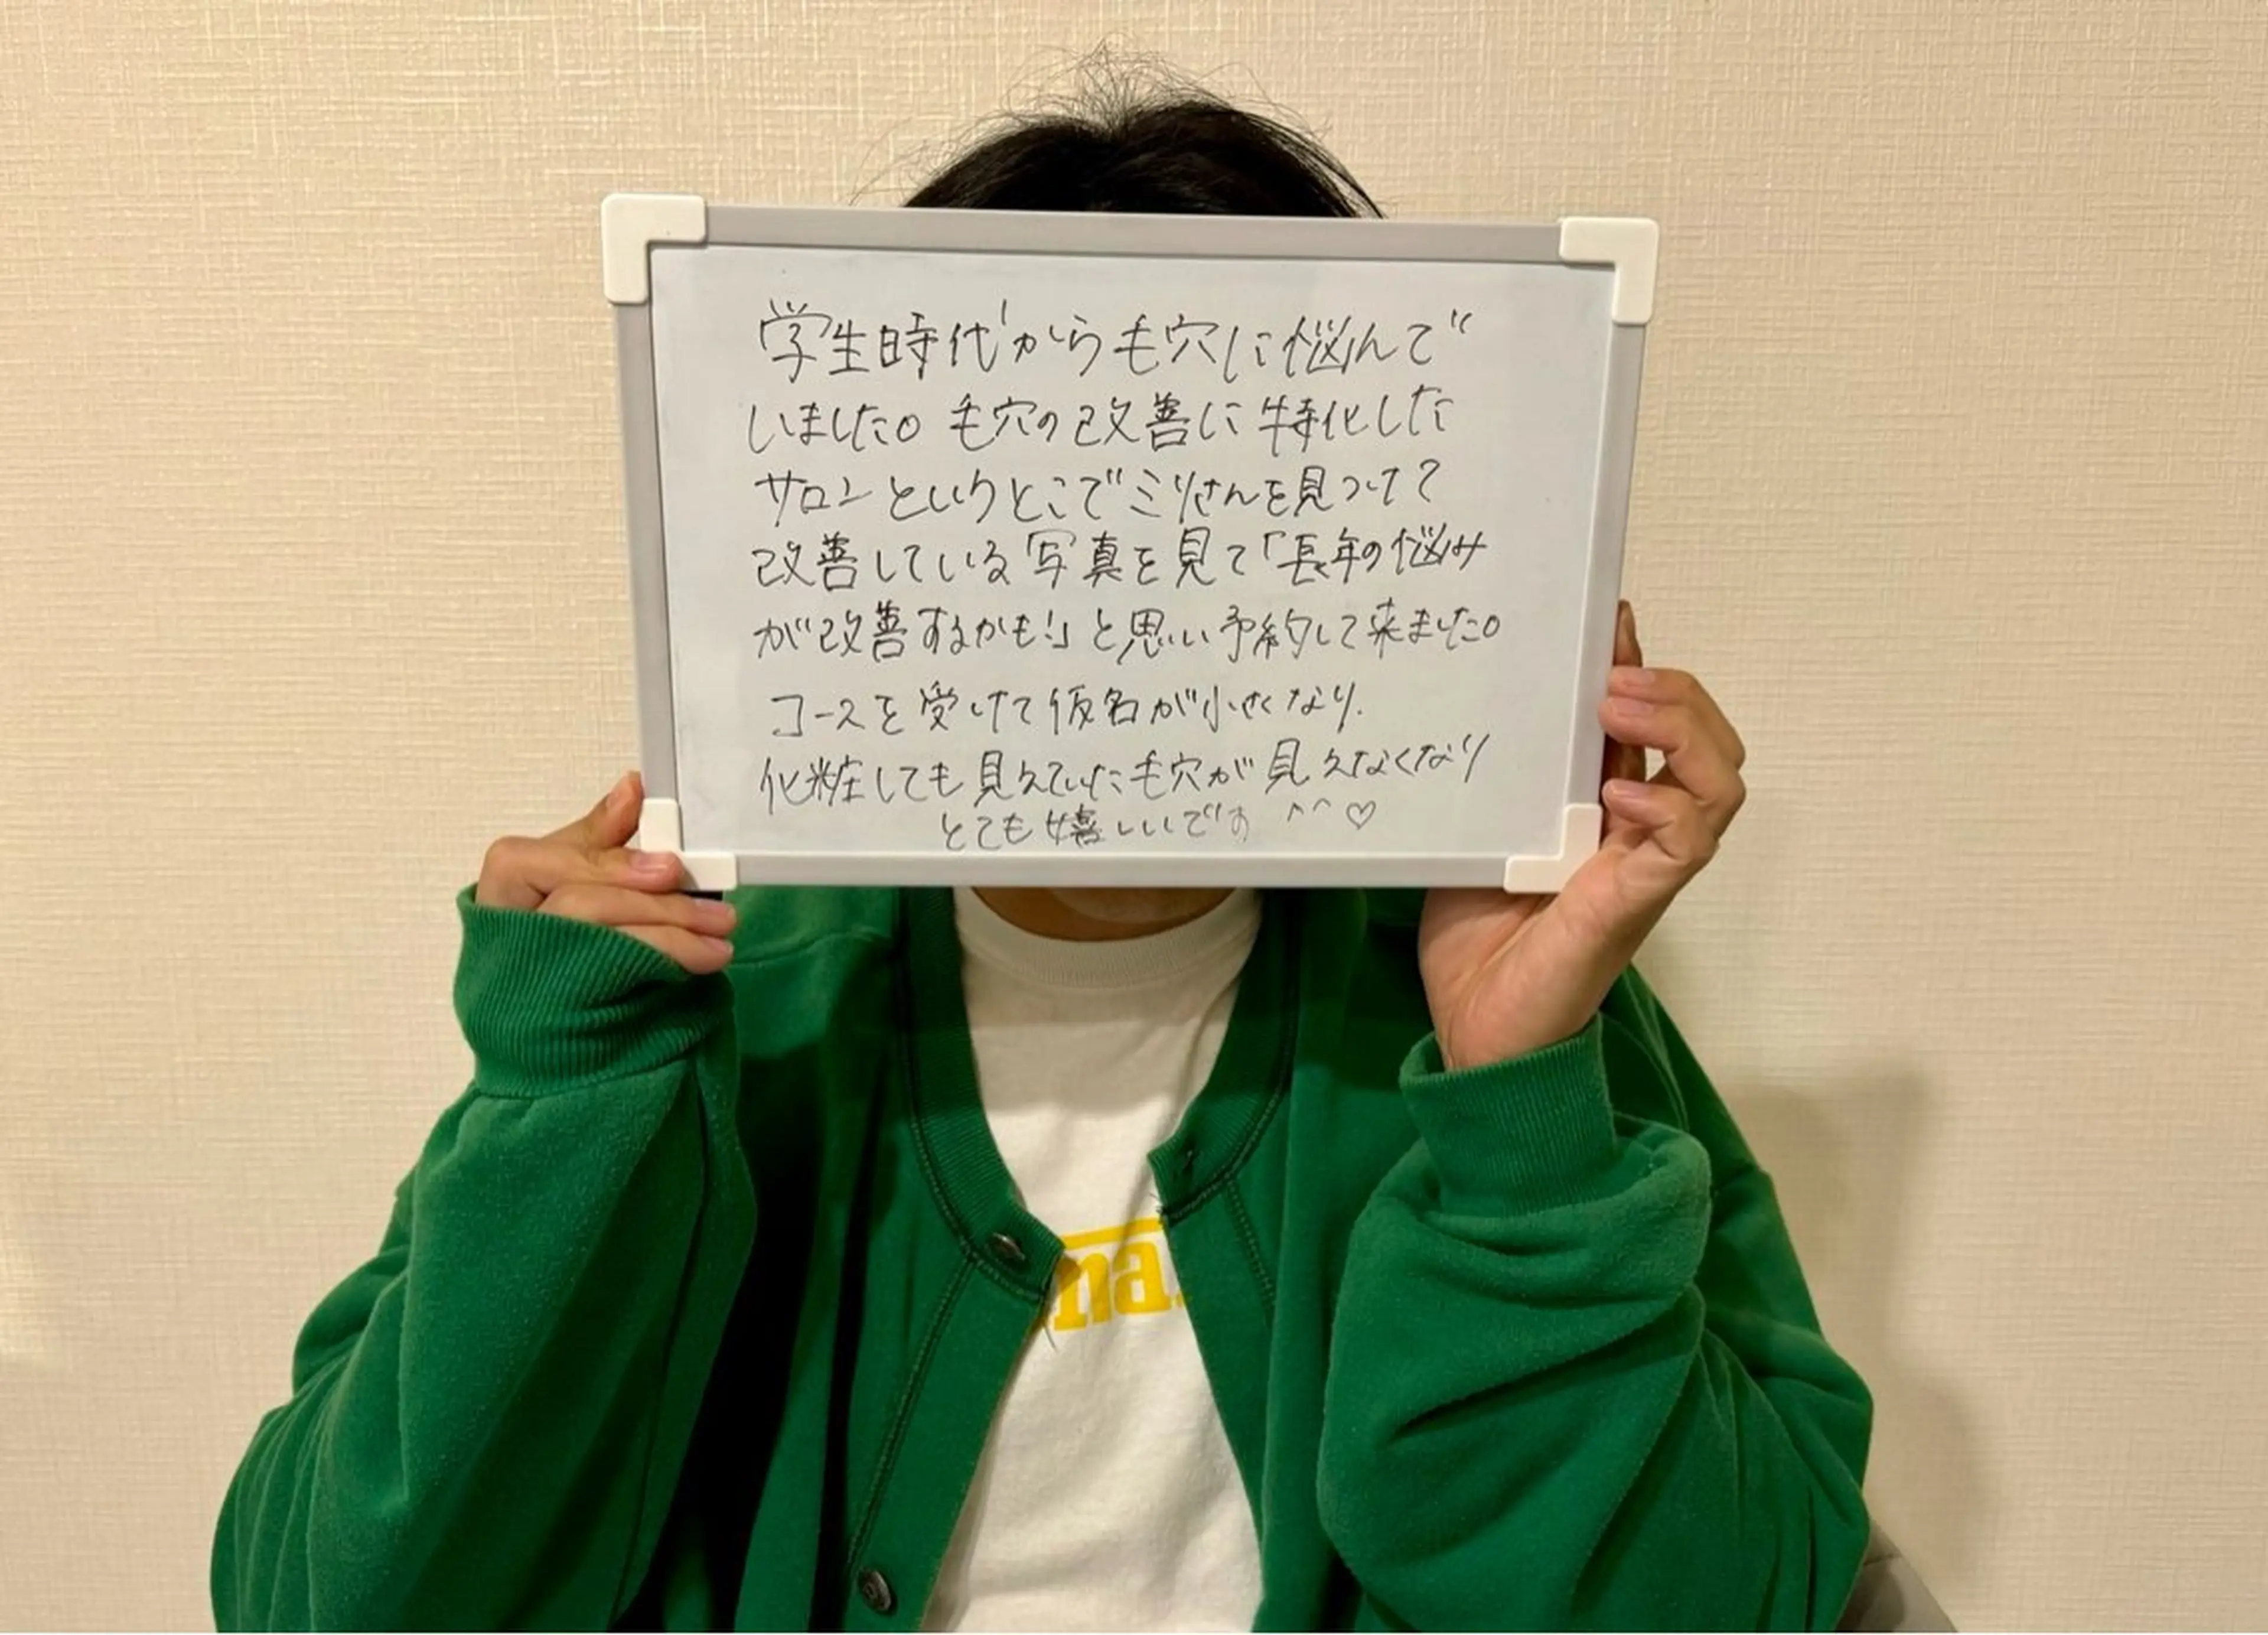 学生時代から毛穴に悩んで
いました。毛穴の改善に特化した
サロンというとこでミリさんを見つけて
改善している写真を見て「長年の悩み
が改善するかも!」と思い予約して来ました。
コースを受けて仮名が小さくなり.
化粧しても見えていた毛穴が見えなくなり
とても嬉しいです ^^♡
na.